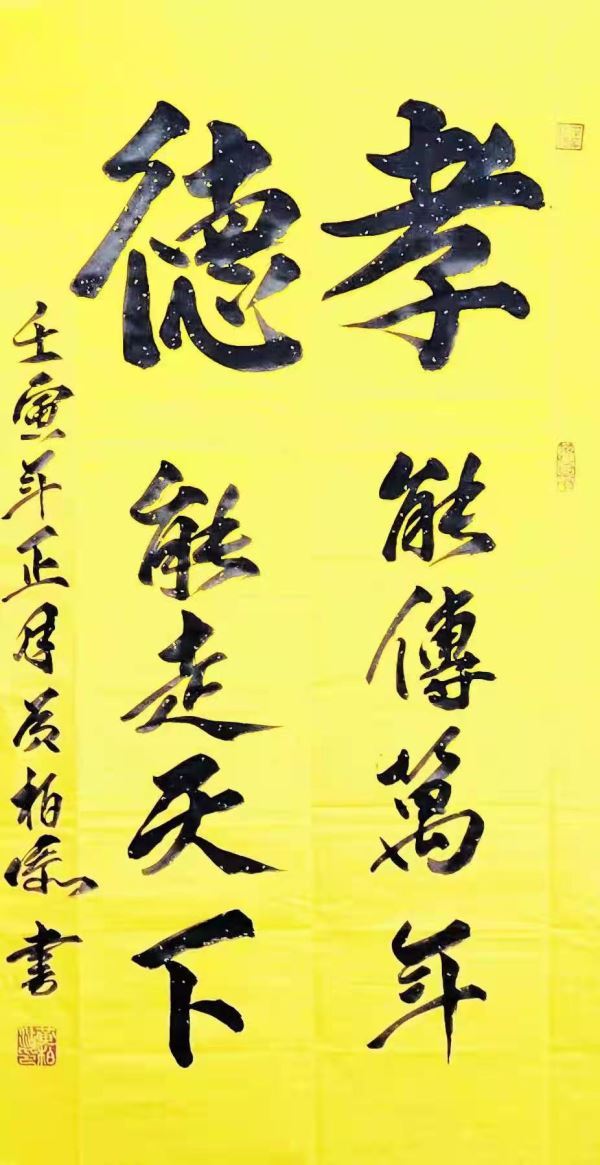 孝能傳萬年
德能走天下
壬寅年正月黃柏添書